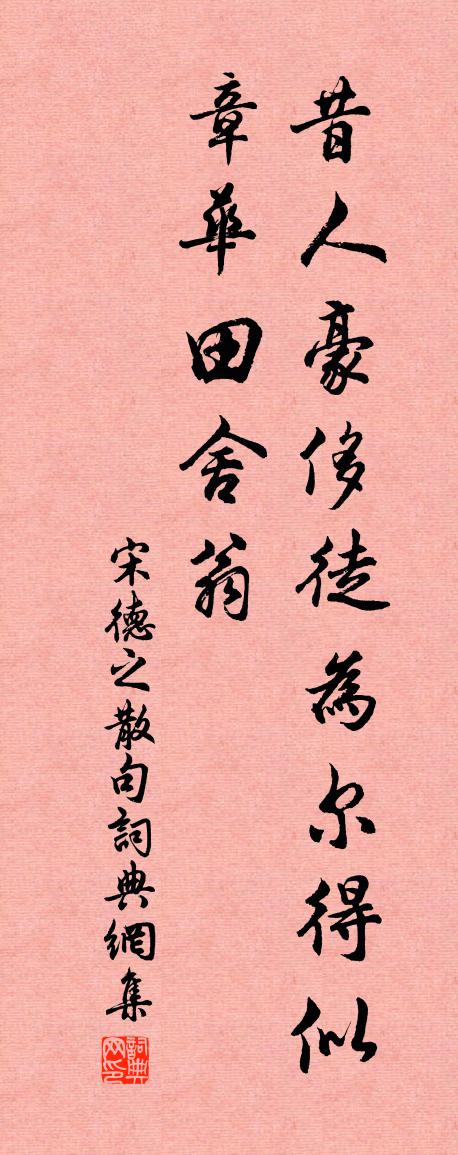 昔人豪侈徒為尔得似
章華田舍翁
宋德之散句詞典網集
詞典网印